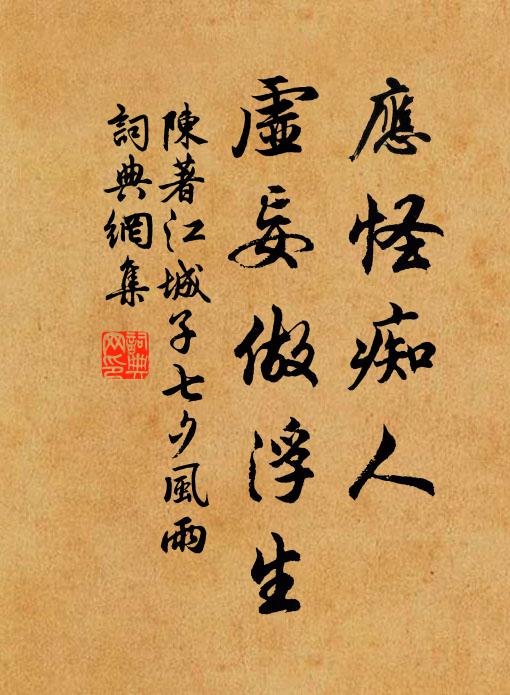 應怪痴人
虛妄做浮生
陳著江城子七夕風雨
詞典網集
詞典
网印